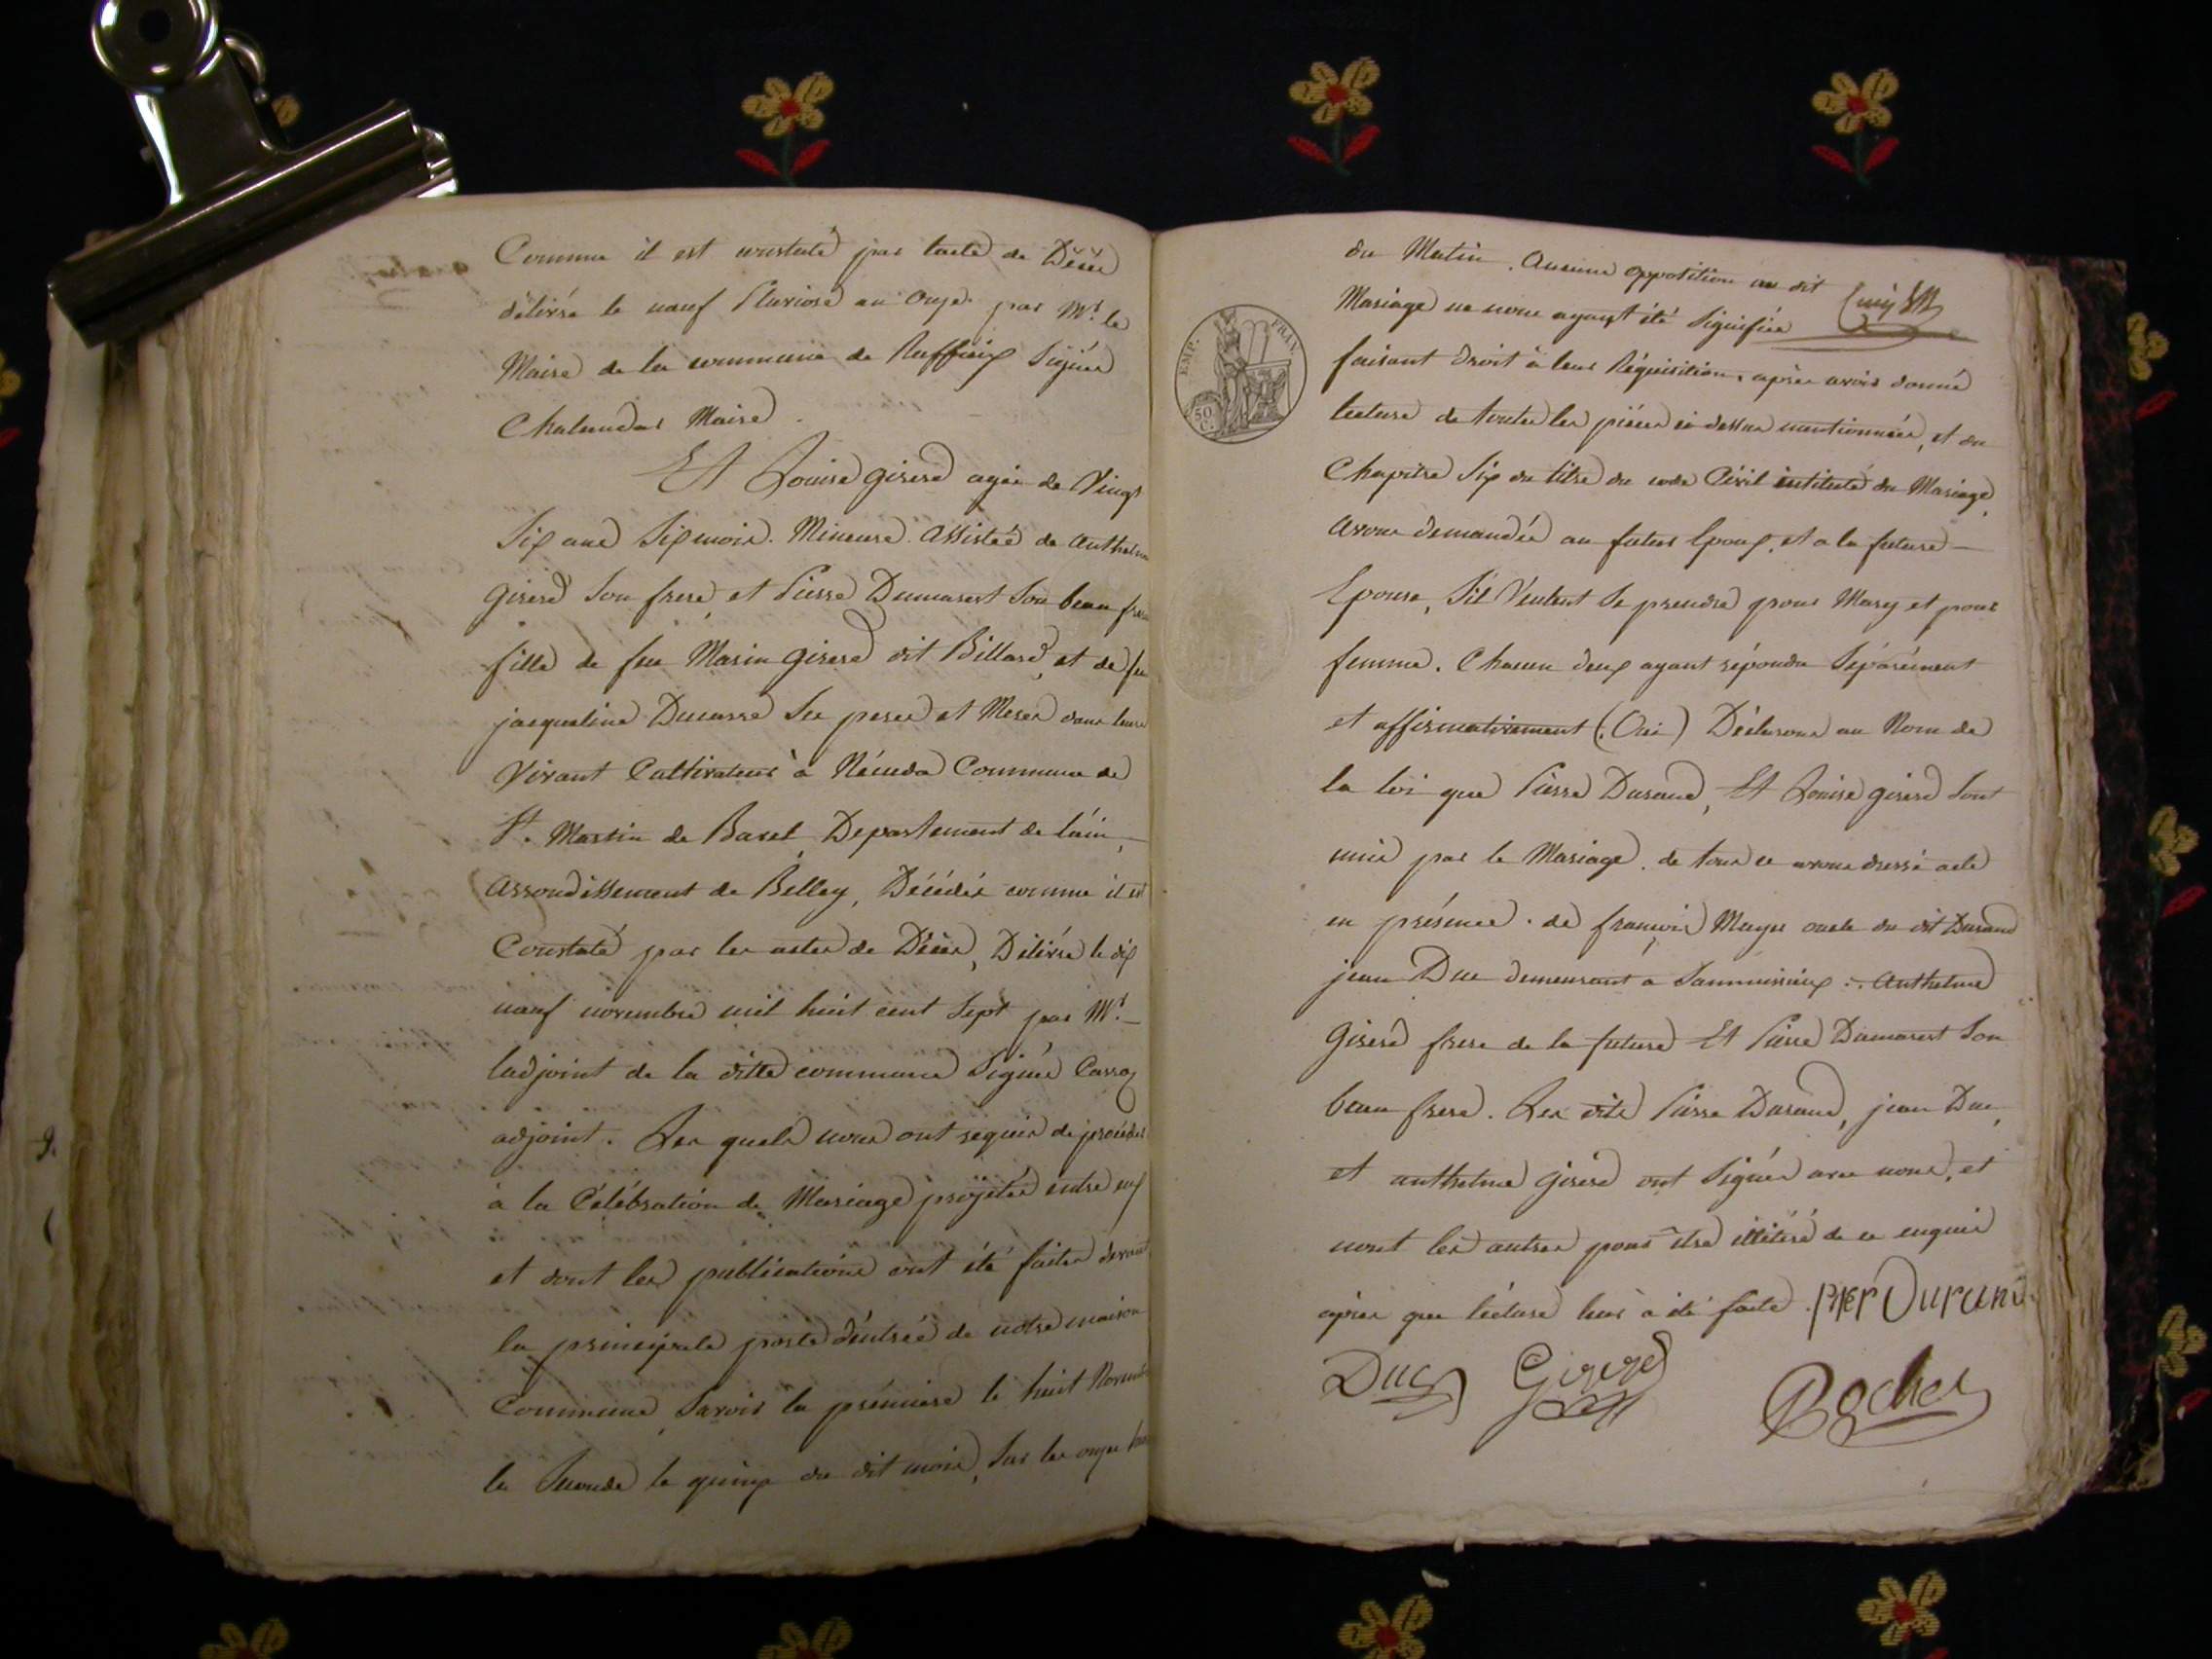 Comme il est constaté par lacte de Décès
délivré le neuf Pluviose an onze par Mr. le
Maire de la commune de Ruffieux Signée
Chalandar Maire.
Et Louise gireré agée de Vingt
Six ans Six mois. Mineure. Assistée de Anthelm
gireré Son frere, et Pierre Dumarest Son beau frere
fille de feu Marin gireré dit Billard, et de feu
jacqueline Ducarre Ses peres et Meres dans leurs
Vivant Cultivateurs à Commune de
St. Martin de Bavel, Departement de láin,
Arrondissement de Belley, Décédés comme il est
Constaté par les actes de Décès, Délivrés le dix
neuf novembre mil huit cent Sept par Mr.
ladjoint de la ditte commune Signée
adjoint. Les quels nous ont requis de procéder
à la Célébration de Mariage projetée entre eux
et dont les publications ont été faites devant
la principale porte déntrée de notre maison
Commune, Savoir la premiere le huit Novembre
la Seconde le quinze du dit mois, Sur les onze heures
du Matin. Aucune opposition au dit
Mariage ne nous ayant été Signifiée
EMP. FRAN.
50 C.
faisant droit à leur Réquisition, après avoir donné
lecture de toutes les piéces ci dessus mentionnées, et du
Chapitre Six du titre du code Civil intitulé du Mariage,
avons demandée au futur Epoux, et a la future
Epouse, Sil Veulent Se prendre pour Mary et pour
femme. Chacun deux ayant répondu Séparément
et affirmativement (Oui) Déclarons au Nom de
la loi que Pierre Durand, Et Louise gireré Sont
unis par le Mariage. de tous ce avons dressé acte
en présence de françois oncle du dit Durand
jean Duc demeurant a Anthelme
Gireré frere de la future Et Pierre Dumarest Son
beau frere. Les dits Pierre Durand, jean Duc,
et anthelme gireré ont Signés avec nous, et
nont les autres pour être illitéré de ce enquis
après que lécture leur à été faite. Pier Durand
Duc Gireré Bochet